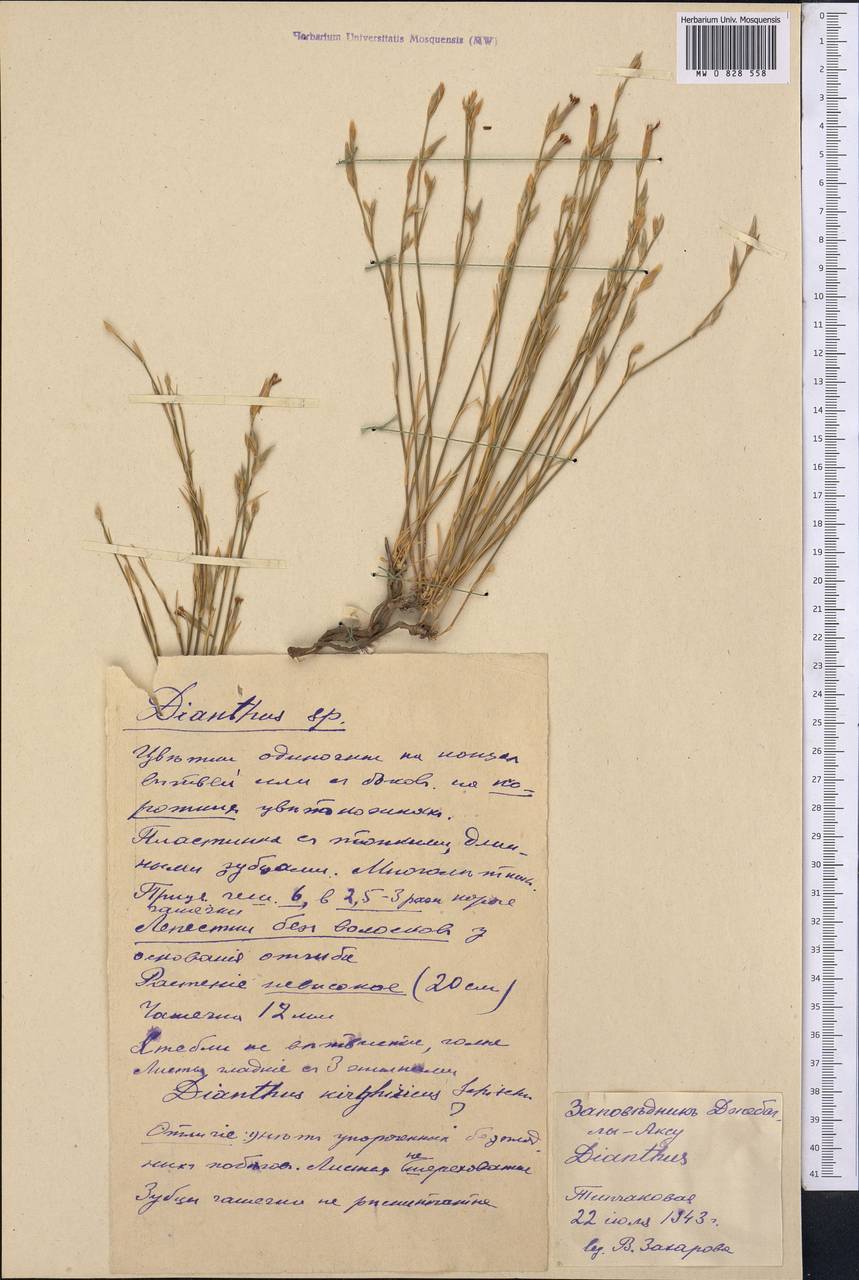 Herbarium Universitatis Mosquensis (MW)
Herbarium Univ. Mosquensis
MW 0 828 558
Dianthus sp.
Цвѣтки одиночные на концах
вѣтвей или с боков. на ко-
ротких цвѣтоножках.
Пластинка с тонкими, длин-
ными зубцами. Многолѣтник.
Прицв. чеш. 6, в 2,5-3 раза короче
чашечки
Лепестки без волосков у
основанія отгиба
Растеніе невысокое (20 см)
Чашечка 12 мм
Стебли не вѣтвистые, голые
Листья гладкіе с 3 жилками
Dianthus kirghisicus Schischk.
?
Отличіе: укороченных безплод-
ных побегов. Листья не шероховатые
Зубцы чашечки не
Заповѣдникъ Джеба-
глы-Аксу
Dianthus
Типчаковая
22 июля 1943 г.
В. Захарова
0 1 2 3 4 5 6 7 8 9 10 11 12 13 14 15 16 17 18 19 20 21 22 23 24 25 26 27 28 29 30 31 32 33 34 35 36 37 38 39 40 41